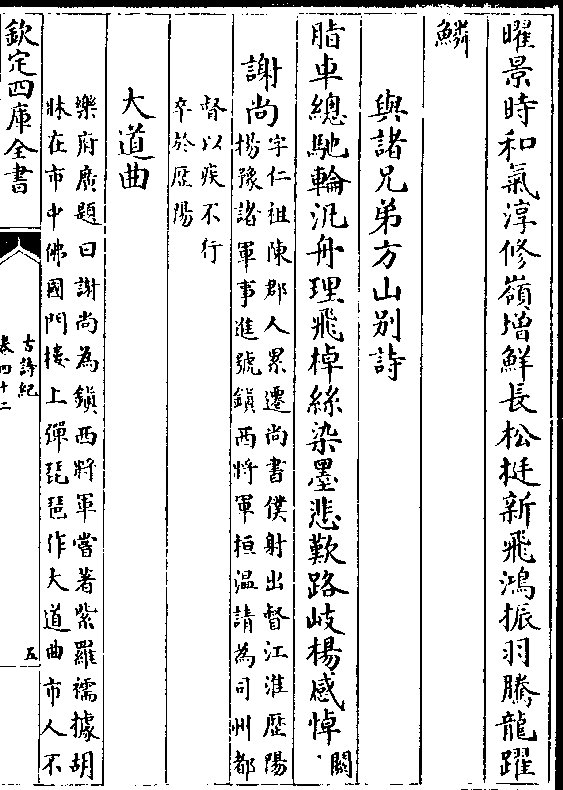 曜景時和氣淳修嶺增鮮長松挺新飛鴻振羽騰龍躍
鱗
與諸兄弟方山别詩
脂車總馳輪汎舟理飛棹絲染墨悲歎路岐楊感悼闕
謝尚字仁祖陳郡人累遷尚書僕射出督江淮歴陽
揚豫諸軍事進號鎮西將軍桓温請為司州都
督以疾不行
卒於歴陽
大道曲
樂府廣題曰謝尚為鎮西將軍嘗著紫羅襦據胡
牀在市中佛國門樓上彈琵琶作大道曲市人不
欽定四庫全書
古詩紀
卷四十二
五